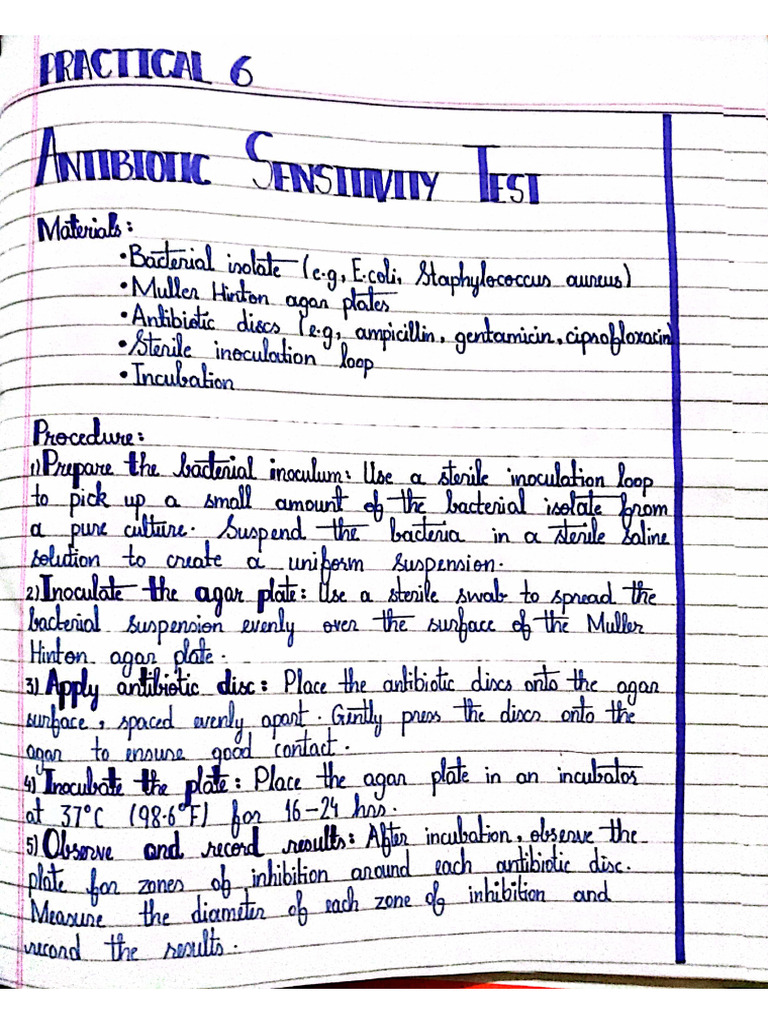 PRACTICAL 6
ANTIBIOTIC SENSITIVITY TEST
Materials:
• Bacterial isolate (e.g, E.coli, Staphylococcus aureus)
• Muller Hinton agar plates
• Antibiotic discs (e.g, ampicillin, gentamicin, ciprofloxacin)
• Sterile inoculation loop
• Incubation
Procedure:
1) Prepare the bacterial inoculum: Use a sterile inoculation loop
to pick up a small amount of the bacterial isolate from
a pure culture. Suspend the bacteria in a sterile saline
solution to create a uniform suspension.
2) Inoculate the agar plate: Use a sterile swab to spread the
bacterial suspension evenly over the surface of the Muller
Hinton agar plate.
3) Apply antibiotic disc: Place the antibiotic discs onto the agar
surface, spaced evenly apart. Gently press the discs onto the
agar to ensure good contact.
4) Inocubate the plate: Place the agar plate in an incubator
at 37°C (98.6°F) for 16-24 hrs.
5) Observe and record results: After incubation, observe the
plate for zones of inhibition around each antibiotic disc.
Measure the diameter of each zone of inhibition and
record the results.